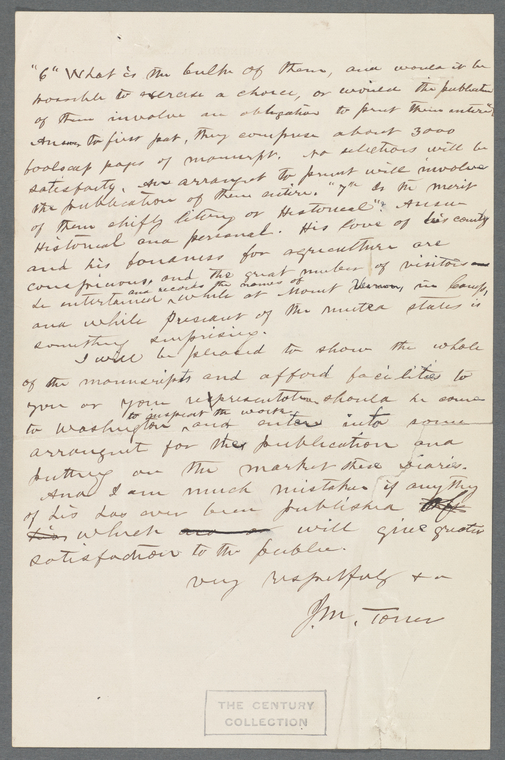 "6" What is the bulk of them, and would it be
possible to exercise a choice, or would the publication
of them involve an obligation to print them entire"?
Answ. to first part, they comprise about 3000
foolscap pages of manscript. No selections will be
satisfactry. An arrangmt to print will involve
the publication of them entire. "7th Is the merit
of them chiefly litery or Historical"? Answ
Historical and personal. His love of his county
and his fondness for agriculture are
conspicuous, and the great number of visitors
he entertained and records the names of while at Mount Vernon, in Camp,
and while President of the United States is
something surprising.
I will be pleased to show the whole
of the manuscripts and afford facilities to
you or your representative should he come
to Washington to inspect the work and enter into some
arrangmt for the publication and
putting on the market these Diaries.
And I am much mistaken if any thing
of his has ever been published
which will give greater
satisfaction to the public.
Very respectfuly &c
J.M. Toner
THE CENTURY
COLLECTION